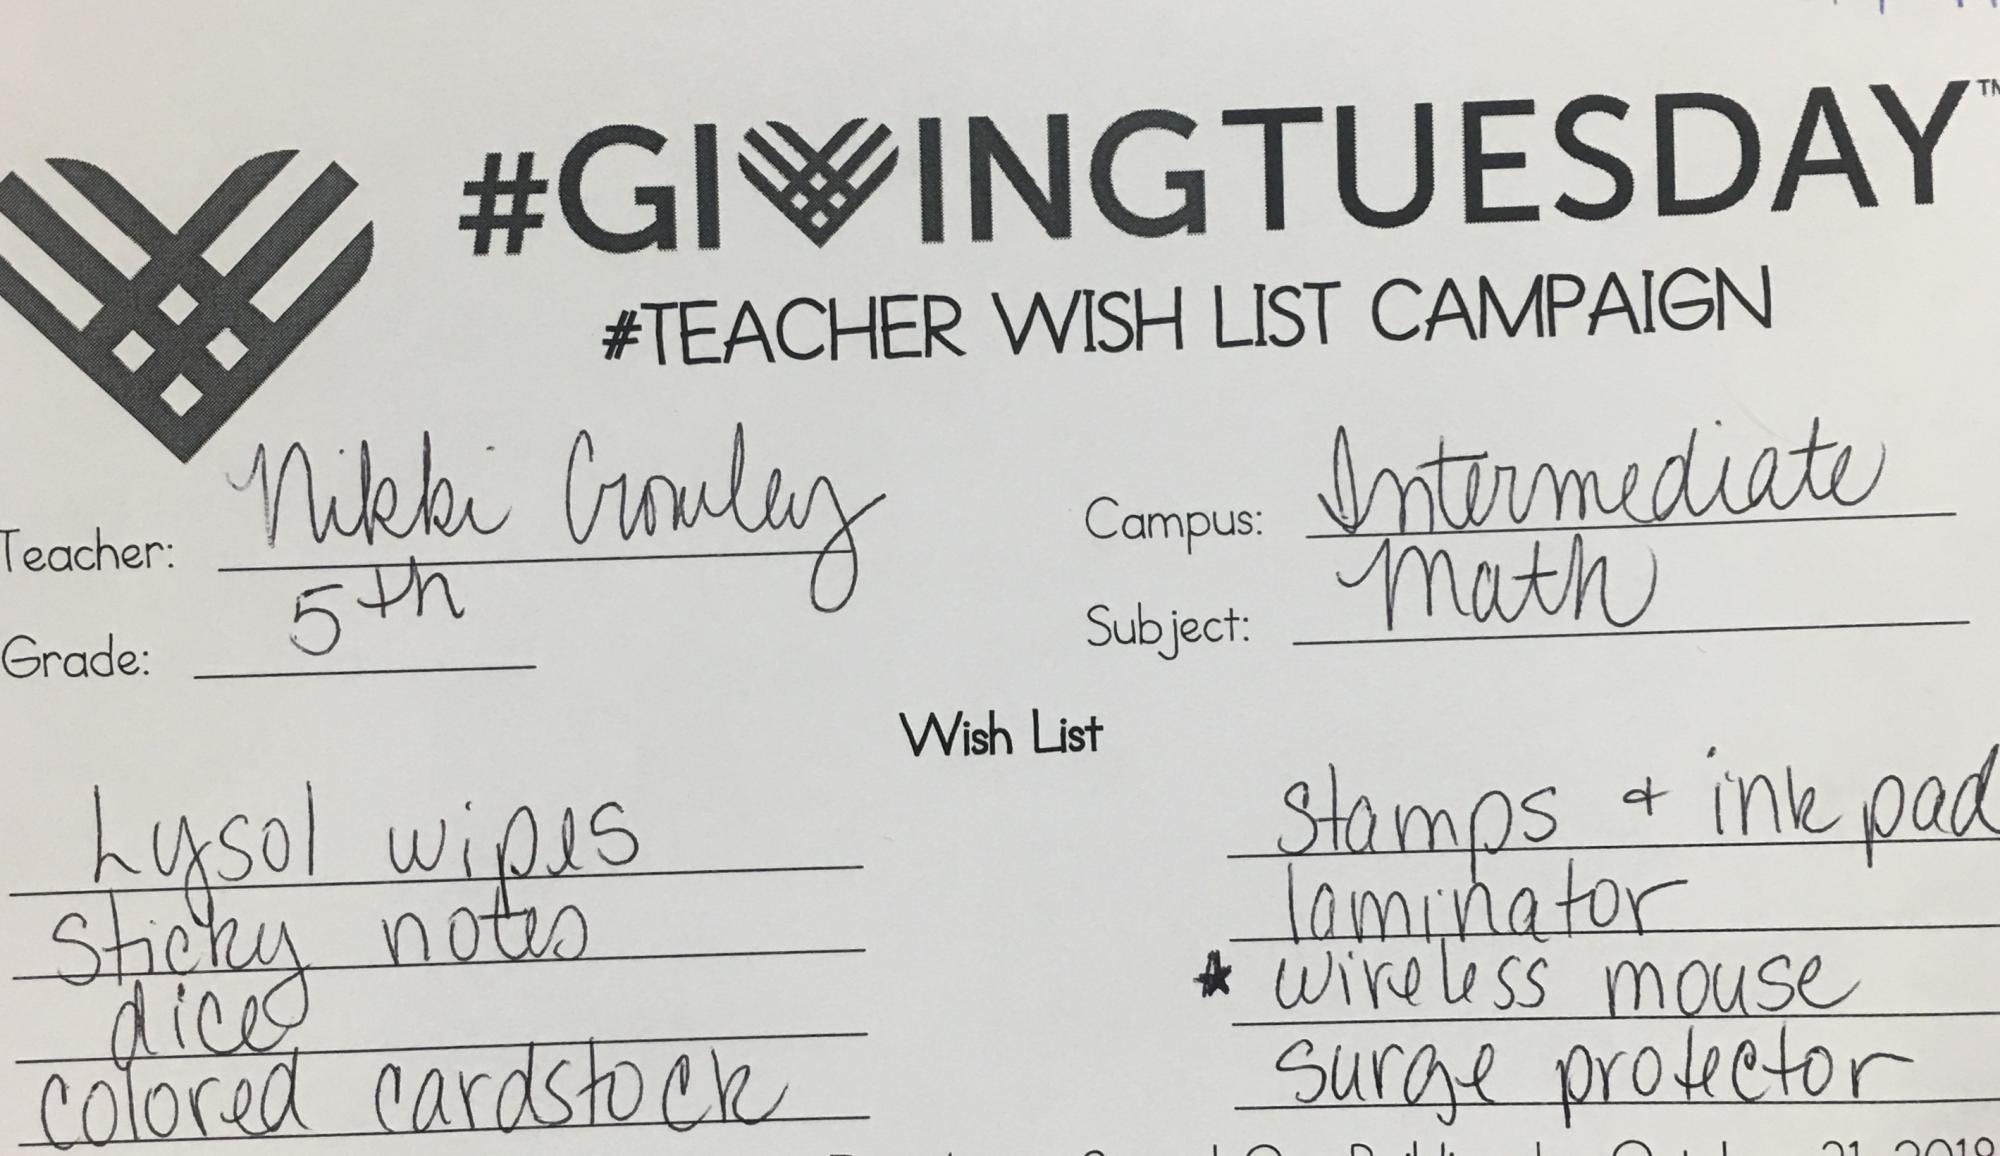 #GIVINGTUESDAY™
#TEACHER WISH LIST CAMPAIGN
Teacher: Nikki Crowley
Campus: Intermediate
Grade: 5th
Subject: Math
Wish List
Lysol wipes
stamps + ink pad
sticky notes
laminator
dice
★ wireless mouse
colored cardstock
surge protector